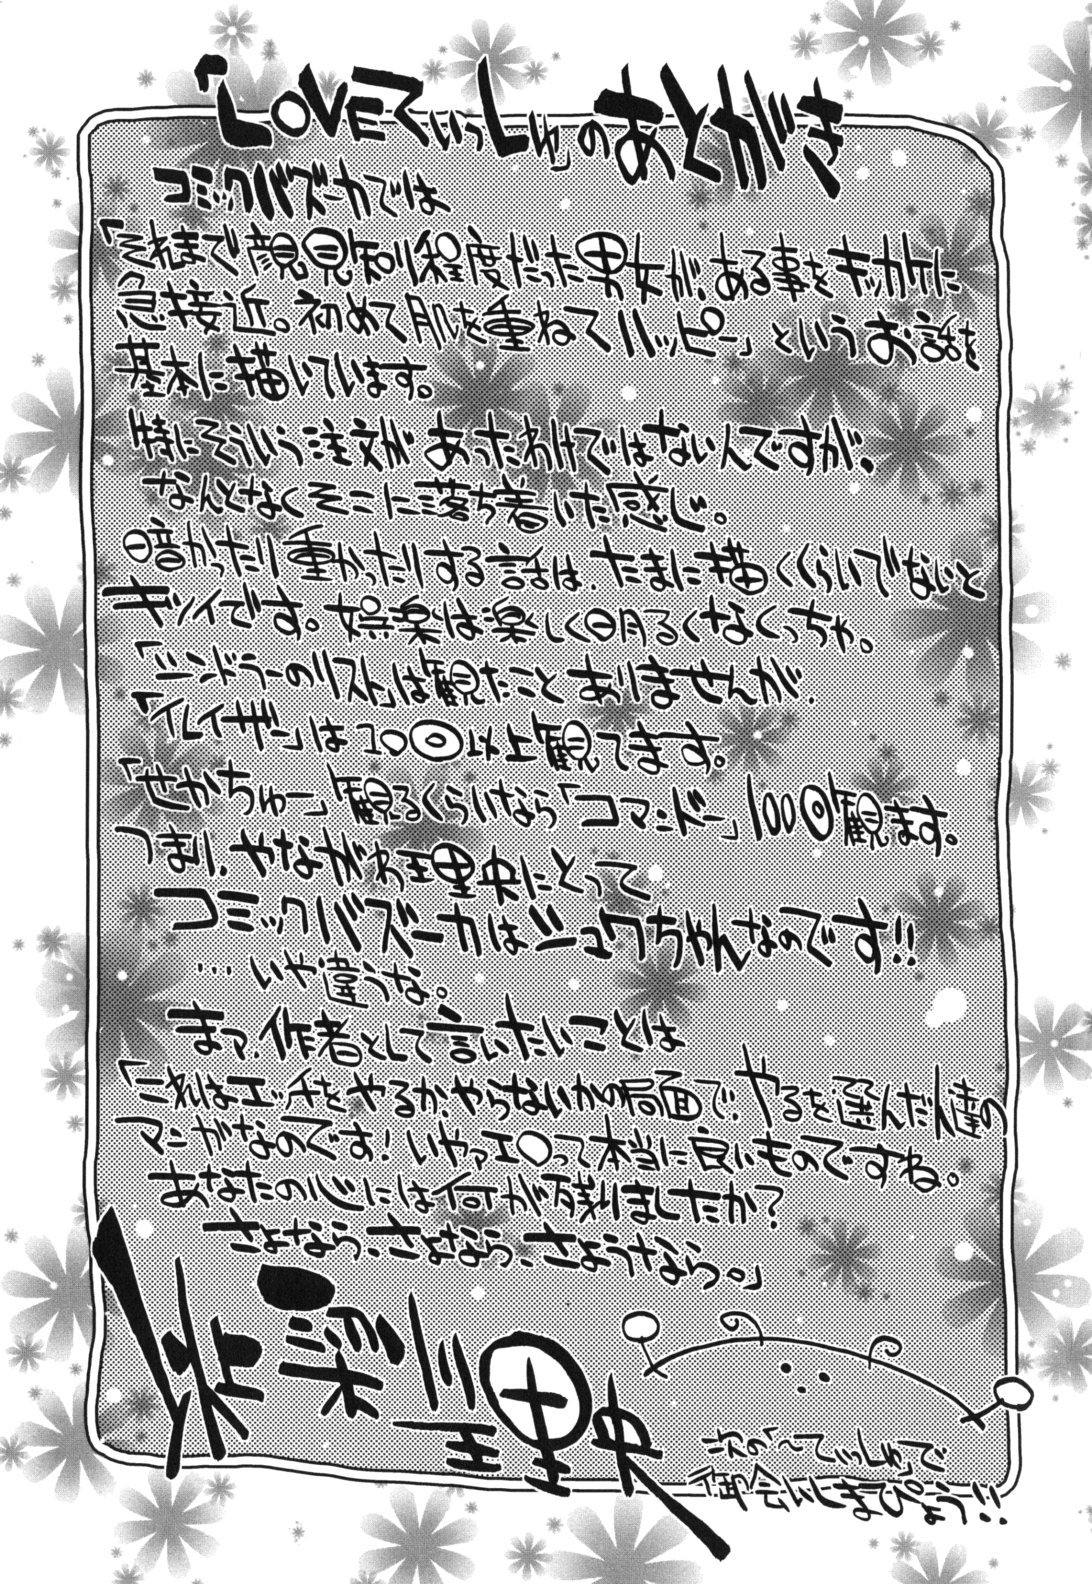 「LOVEてぃっしゅ」のあとがき
コミックバズーカでは
「それまで顔見知り程度だった男女が、ある事をキッカケに
急接近。初めて肌を重ねてハッピー」というお話を
基本に描いています。
特にそういう注文があったわけではないんですが、
なんとなくそこに落ち着いた感じ。
暗かったり重かったりする話は、たまに描くくらいでないと
キツイです。娯楽は楽しく明るくなくっちゃ。
「シンドラーのリスト」は観たことありませんが、
「イレイザー」は20回以上観てます。
「せかちゅー」観るくらいなら「コマンドー」100回観ます。
つまり、やながわ理央にとって
コミックバズーカはシュワちゃんなのです!!
…いや違うな。
まァ、作者として言いたいことは
「これはエッチをやるか、やらないかの局面で、やるを選んだ人達の
マンガなのです!いやァエロって本当に良いものですね。
あなたの心には何が残りましたか?
さよなら、さよなら、さようなら。」
理央
次の「〜てぃっしゅ」で
御会いしまぴょう!!